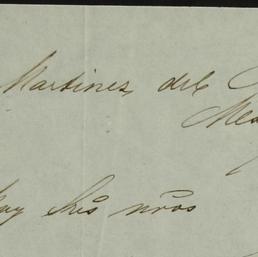 Martinez del
Mex
Muy Sres nros